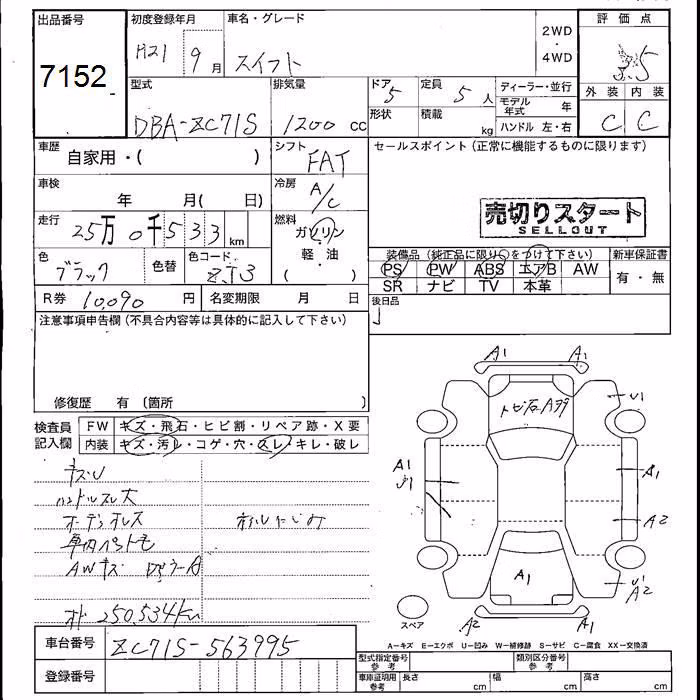 出品番号 初度登録年月 車名・グレード 評価点
7152 H21 9月 スイフト 2WD・4WD 3.5
型式 排気量 ドア 定員 ディーラー・並行 外装 内装
DBA-ZC71S 1200cc 5 5人 モデル年式 年 C C
形状 積載 kg ハンドル 左・右
車歴 自家用・( ) シフト FAT セールスポイント(正常に機能するものに限ります)
車検 年 月( 日) 冷房 A/C
売切りスタート
SELLOUT
走行 25万0千533km 燃料 ガソリン
軽・油
( )
色 ブラック 色替 色コード ZJ3
装備品(純正品に限り○をつけて下さい) 新車保証書
PS PW ABS エアB AW 有・無
SR ナビ TV 本革
R券 10,090円 名変期限 月 日 後日品
注意事項申告欄(不具合内容等は具体的に記入して下さい)
修復歴 有 (箇所 )
検査員記入欄 FW キズ・飛石・ヒビ割・リペア跡・X要
内装 キズ・汚レ・コゲ・穴・スレ・キレ・破レ
キズU
ハンドルスレ大
オーディオレス
AWキズ
オド 250,534km
A1 A1
トビ石A99
U1
A1
U1
A1
A2
A1
U1
A2
A2 A1
スペア
A=キズ E=エクボ U=凹み W=補修跡 S=サビ C=腐食 XX=交換済
車台番号 ZC71S-563995
登録番号
型式指定番号 参考 類別区分番号 参考
車庫証明用 参考 長さ cm 幅 cm 高さ cm